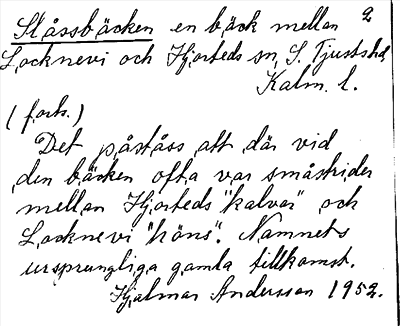 Slåssbäcken en bäck mellan 2
Locknevi och Hjorteds sn, S. Tjusts hd.
Kalm. l.
(forts.)
Det påståss att där vid
den bäcken ofta var småstrider
mellan Hjorteds "kalvar" och
Locknevi "höns". Namnets
ursprungliga gamla tillkomst.
Hjalmar Andersson 1952.